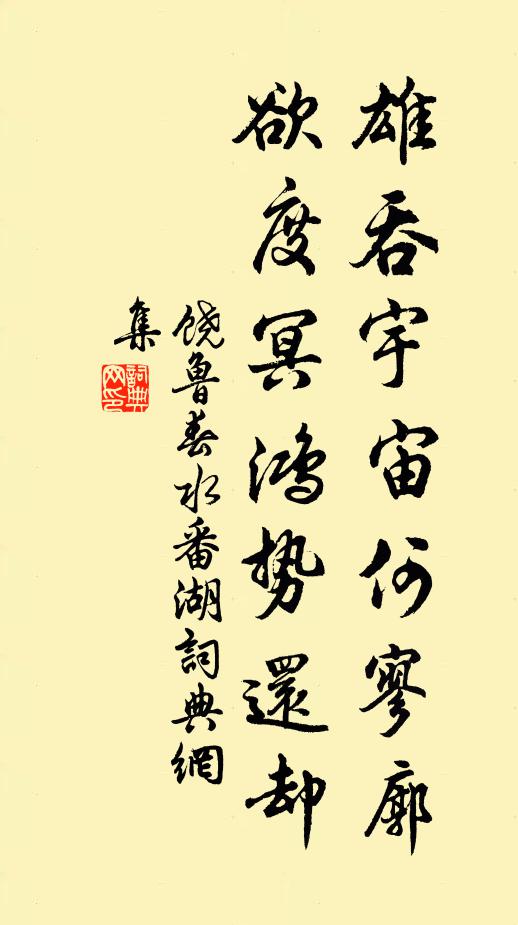 雄吞宇宙何寥廓
欲度冥鴻勢還却
饒魯春水番湖詞典網
集
詞典
网印